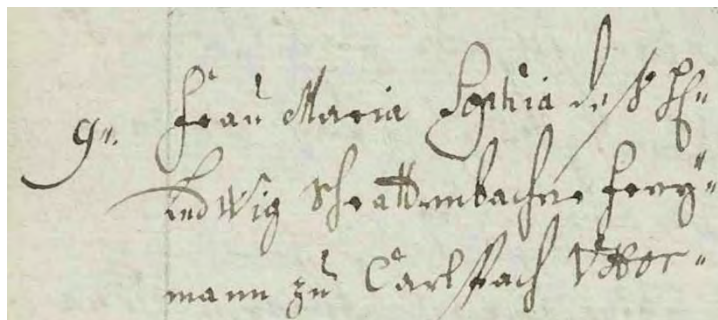 9. Frau Maria Sophia deß H:
Ludwig Schrattenbacher Frey-
mann zu Carlspach Uxor.